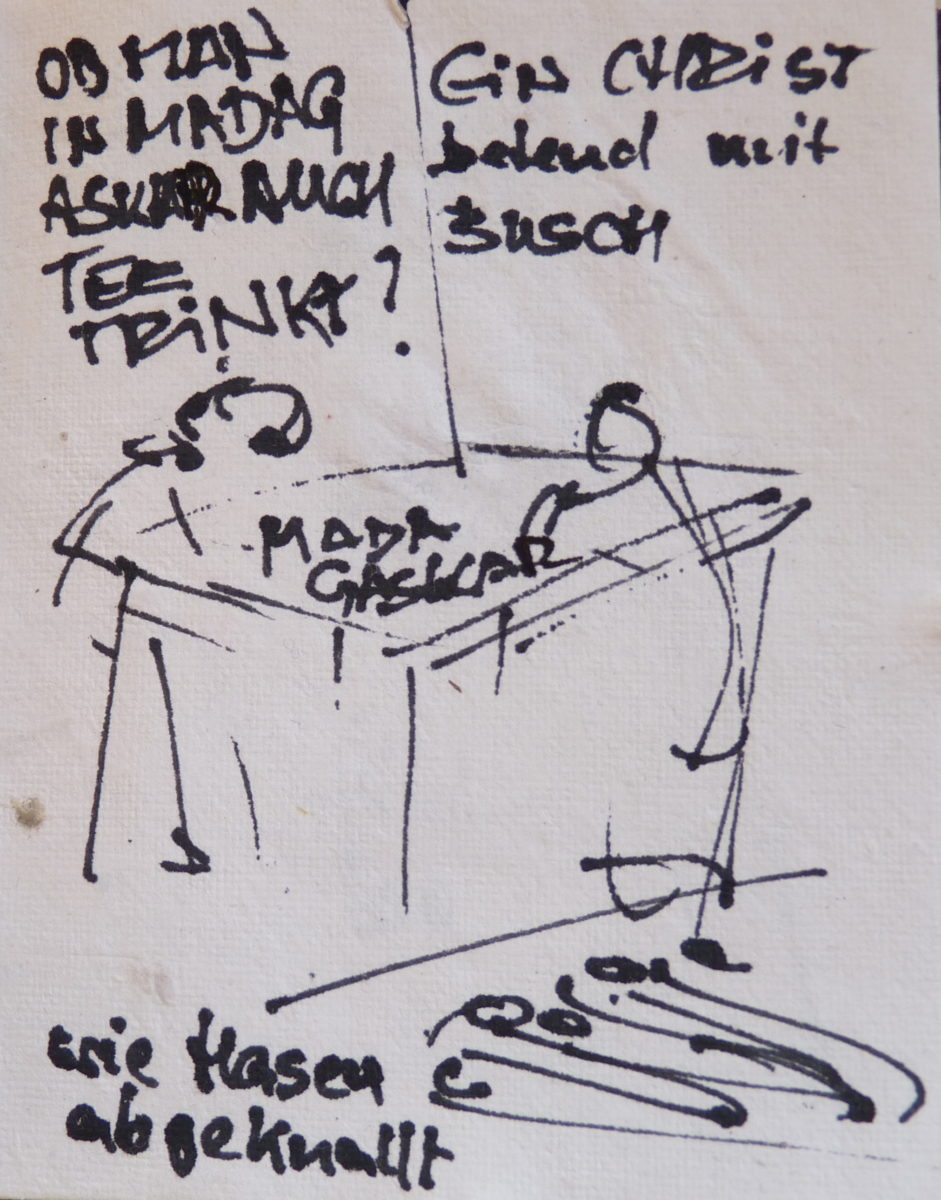 OB MAN
IN MADAG
ASKAR AUCH
TEE
TRINKT?
EiN CHRiST
betend mit
BUSCH
MADA
GASKAR
wie Hasen
abgeknallt